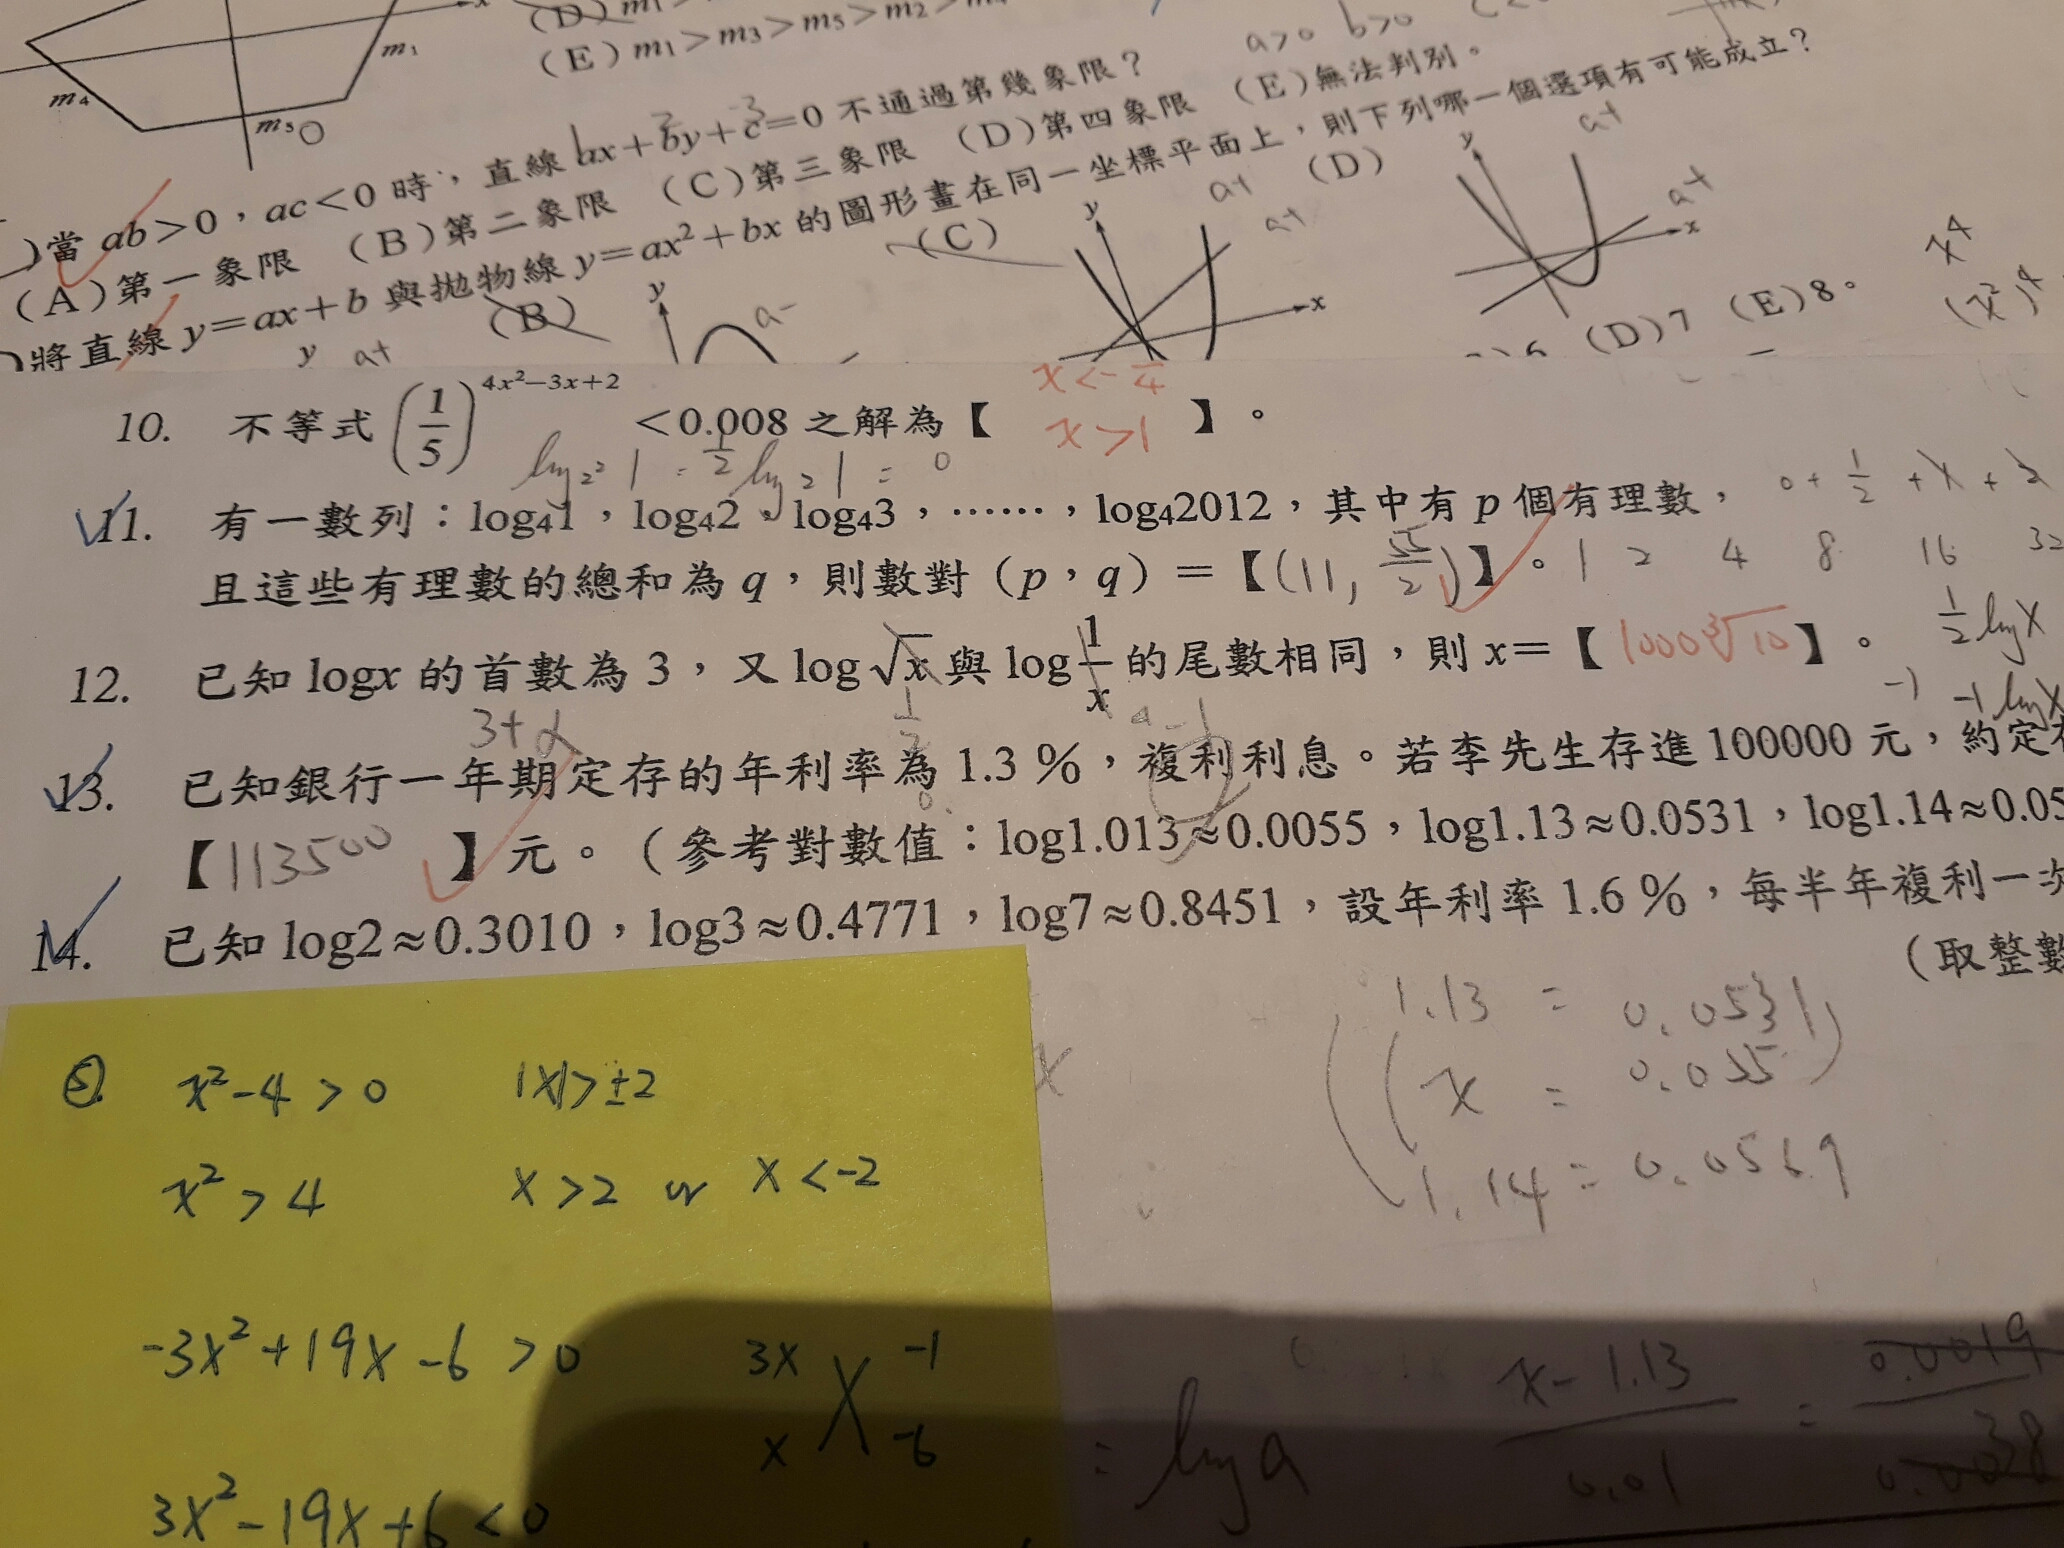 (D) m₁
(E) m₁>m₃>m₅>m₂>m₄
m₁
m₄
m₅
a>0 b>0
)當 ab>0,ac<0 時,直線 ax+by+c=0 不通過第幾象限?
(A)第一象限 (B)第二象限 (C)第三象限 (D)第四象限 (E)無法判別。
)將直線 y=ax+b 與拋物線 y=ax²+bx 的圖形畫在同一坐標平面上,則下列哪一個選項有可能成立?
(B) (C) (D)
y a+
y a-
y a+ a+ x
y a+ a+ x
(D)7 (E)8。
x⁴
(x²)⁴
10. 不等式 (1/5)^(4x²−3x+2) <0.008 之解為【 x>1 】。
log₂² 1 = 1/2 log₂ 1 = 0
11. 有一數列:log₄1,log₄2,log₄3,……,log₄2012,其中有 p 個有理數,
0+1/2+1+
且這些有理數的總和為 q,則數對(p,q)=【(11, 55/2)】。
1 2 4 8 16 32
12. 已知 logx 的首數為 3,又 log√x 與 log 1/x 的尾數相同,則 x=【1000∛10】。
1/2 log x
-1 -1 log x
3+α
13. 已知銀行一年期定存的年利率為 1.3 %,複利利息。若李先生存進 100000 元,約定
【113500】元。(參考對數值:log1.013≈0.0055,log1.13≈0.0531,log1.14≈0.05
14. 已知 log2≈0.3010,log3≈0.4771,log7≈0.8451,設年利率 1.6 %,每半年複利一次
(取整數
1.13 = 0.0531
x = 0.055
1.14 = 0.0569
x-1.13 / 0.01 = 0.0019 / 0.0038
= log a
⑤ x²-4>0 |x|>±2
x²>4 x>2 or x<-2
-3x²+19x-6>0 3x -1
x -6
3x²-19x+6<0